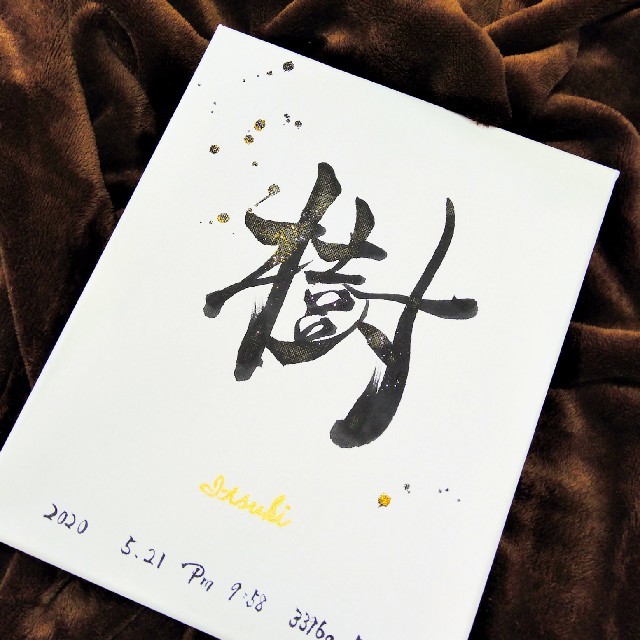 樹
Itsuki
2020 5.21 Pm 9:58 3376g